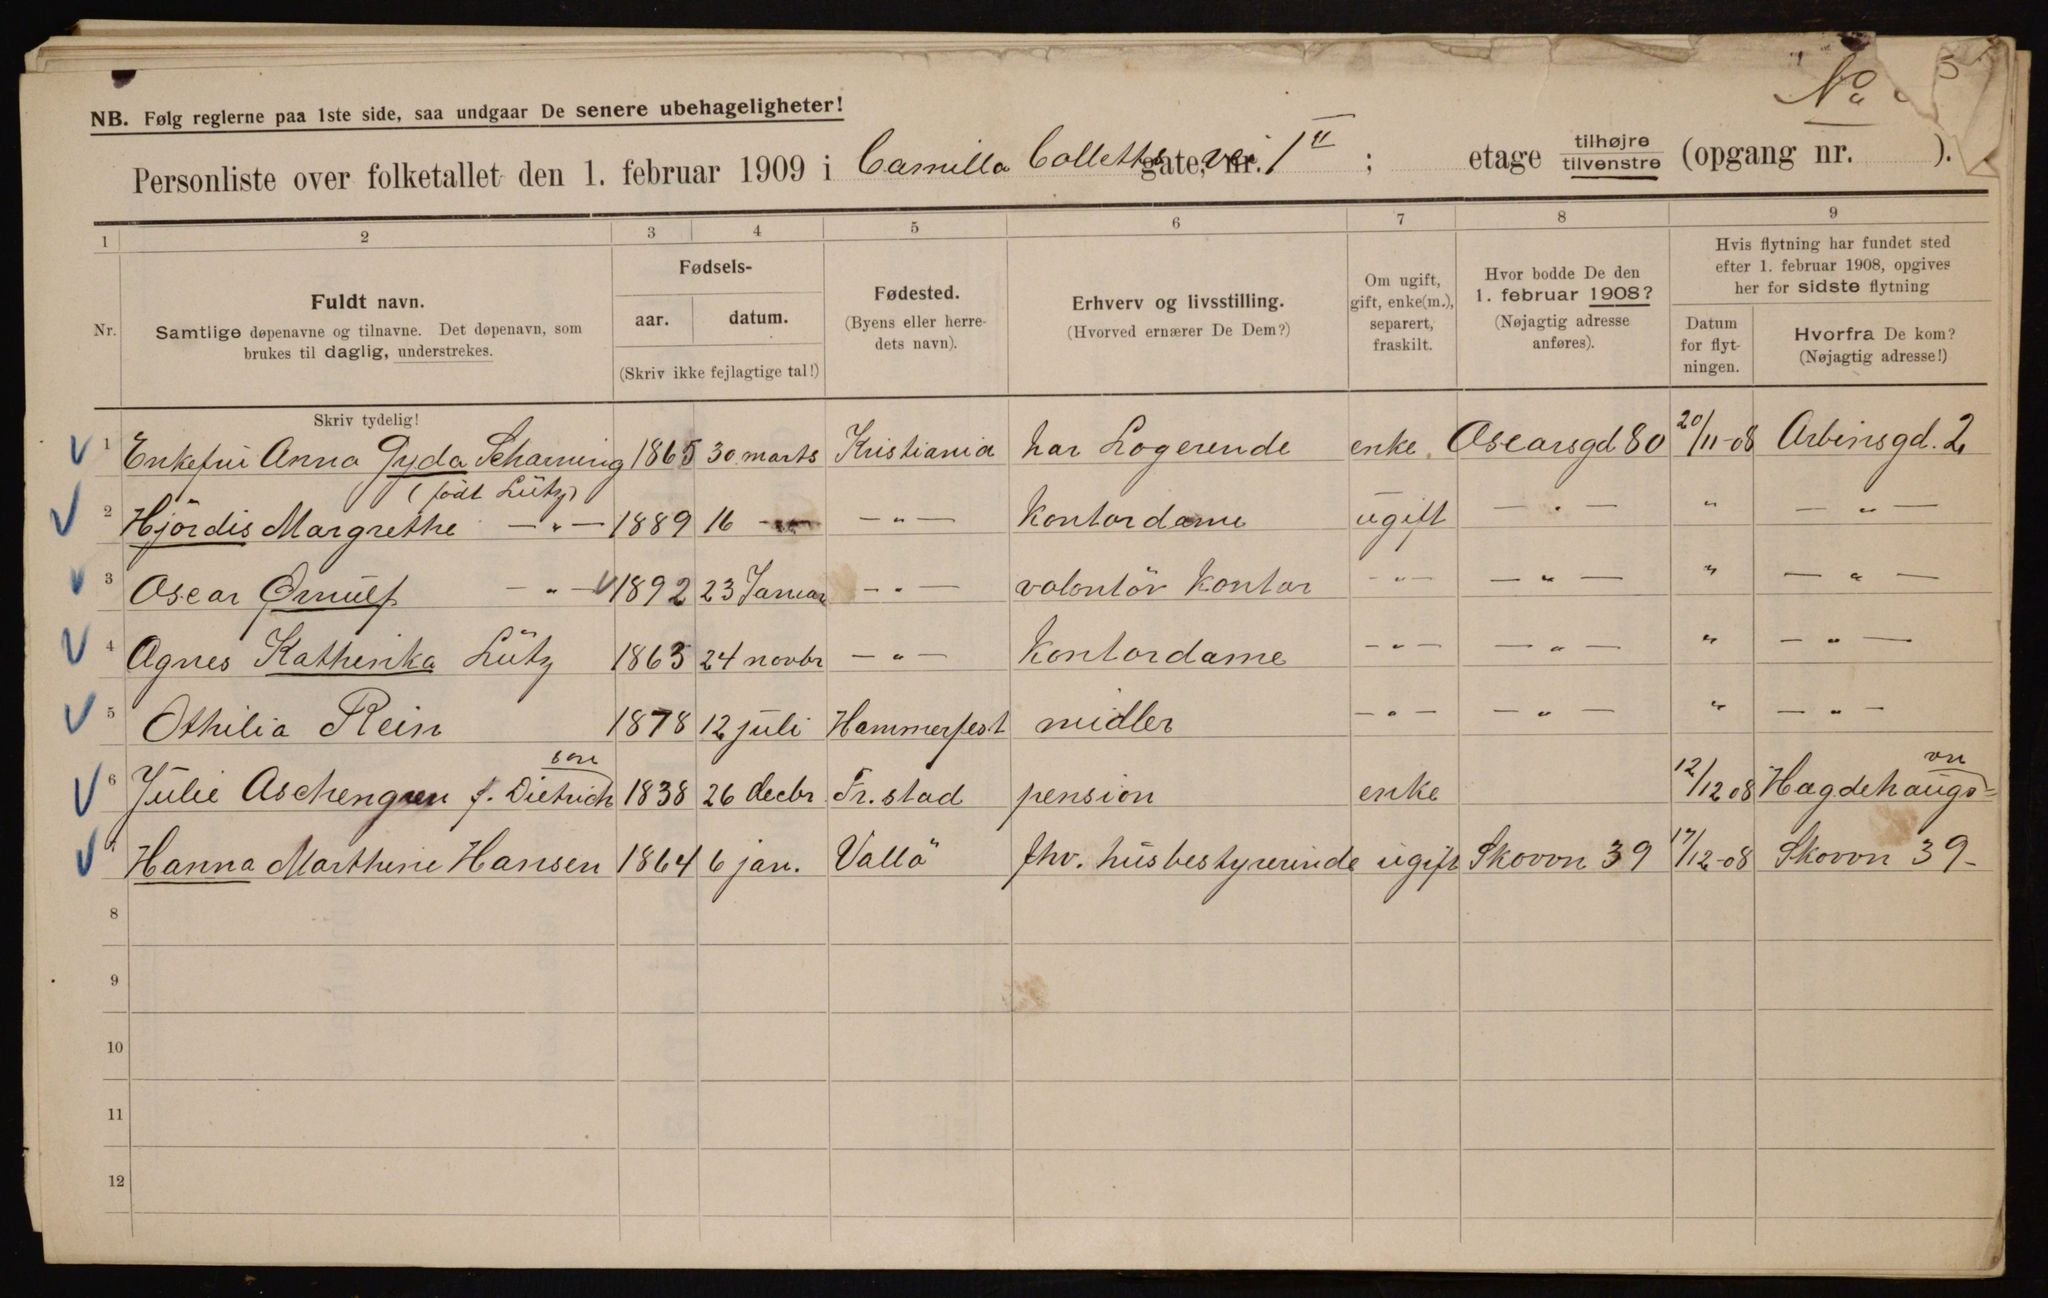 No
NB. Følg reglerne paa 1ste side, saa undgaar De senere ubehageligheter!
Personliste over folketallet den 1. februar 1909 i Camilla Colletts gate, vei nr. 1 II ; etage tilhøjre tilvenstre (opgang nr. ).
1 2 3 4 5 6 7 8 9
Nr.
Fuldt navn.
Samtlige døpenavne og tilnavne. Det døpenavn, som
brukes til daglig, understrekes.
Skriv tydelig!
Fødsels-
aar. datum.
(Skriv ikke fejlagtige tal!)
Fødested.
(Byens eller herre-
dets navn).
Erhverv og livsstilling.
(Hvorved ernærer De Dem?)
Om ugift,
gift, enke(m.),
separert,
fraskilt.
Hvor bodde De den
1. februar 1908?
(Nøjagtig adresse
anføres).
Hvis flytning har fundet sted
efter 1. februar 1908, opgives
her for sidste flytning
Datum
for flyt-
ningen.
Hvorfra De kom?
(Nøjagtig adresse!)
1 Enkefru Anna Gyda Scharning 1865 30 marts Kristiania har Logerende enke Oscarsgd 80 20/11-08 Arbinsgd. 2
(født Lütz)
2 Hjördis Margrethe — " — 1889 16 — " — — " — Kontordame ugift — " — " — " —
3 Oscar Ørnulf — " — 1892 23 Januar — " — volontör kontor — " — — " — " — " —
4 Agnes Kathinka Lütz 1863 24 novbr — " — Kontordame — " — — " — " — " —
5 Othilia Rein 1878 12 juli Hammerfest midler — " — — " — " — " —
6 Julie Aschengreen f. Dietrichson 1838 26 decbr Fr.stad pension enke 12/12 08 Hægdehaugsvn
7 Hanna Marthine Hansen 1864 6 jan. Vallö fhv. husbestyrerinde ugift Skovvn 39 17/12-08 Skovvn 39-
8
9
10
11
12